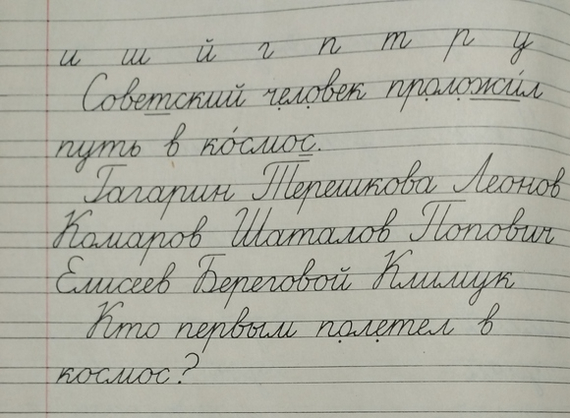 и ш й г п т р у
Советский человек проложи́л
путь в ко́смос.
Гагарин Терешкова Леонов
Комаров Шаталов Попович
Елисеев Береговой Климук
Кто первым полетел в
космос?